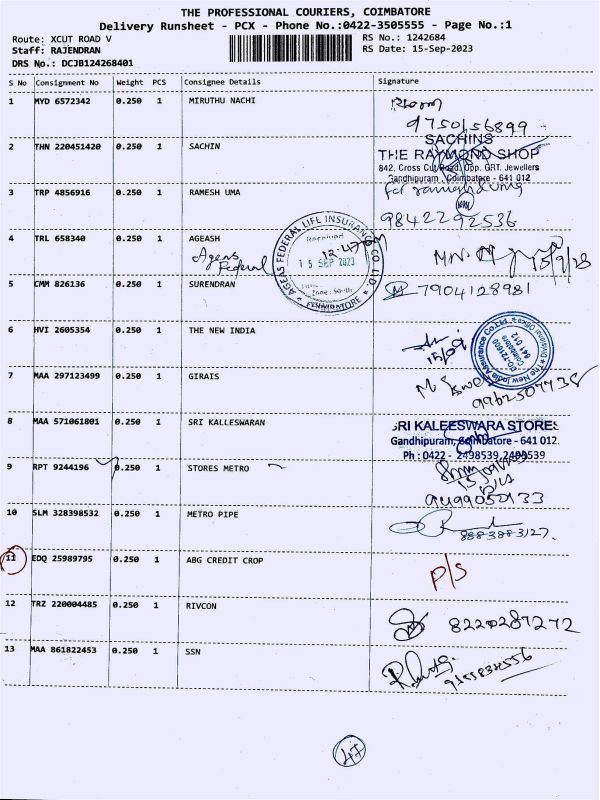 THE PROFESSIONAL COURIERS, COIMBATORE
Delivery Runsheet - PCX - Phone No.:0422-3505555 - Page No.:1
Route: XCUT ROAD V RS No.: 1242684
Staff: RAJENDRAN RS Date: 15-Sep-2023
DRS No.: DCJB124268401
S No Consignment No Weight PCS Consignee Details Signature
1 MYD 6572342 0.250 1 MIRUTHU NACHI
9750156899
2 THN 220451420 0.250 1 SACHIN
SACHINS
THE RAYMOND SHOP
842, Cross Cut Road, Opp. GRT. Jewellers
Gandhipuram, Coimbatore - 641 012
3 TRP 4856916 0.250 1 RAMESH UMA
for
9842292536
4 TRL 658340 0.250 1 AGEASH
Ageas Federal
AGEAS FEDERAL LIFE INSURANCE CO LTD.
Received
12.47pm
15 SEP 2023
COIMBATORE
15/9/23
5 CMM 826136 0.250 1 SURENDRAN 7904128981
6 HVI 2605354 0.250 1 THE NEW INDIA
15/09
The New India Assurance Co.Ltd.
DO-721600
Coimbatore
641 012
7 MAA 297123499 0.250 1 GIRAIS
9962507738
8 MAA 571061801 0.250 1 SRI KALLESWARAN
SRI KALEESWARA STORES
Gandhipuram, Coimbatore - 641 012.
Ph : 0422 - 2498539, 2499539
9 RPT 9244196 0.250 1 STORES METRO
9499050133
10 SLM 328398532 0.250 1 METRO PIPE
8883883127.
11 EDQ 25989795 0.250 1 ABG CREDIT CROP
P/S
12 TRZ 220004485 0.250 1 RIVCON 8220287272
13 MAA 861822453 0.250 1 SSN
47